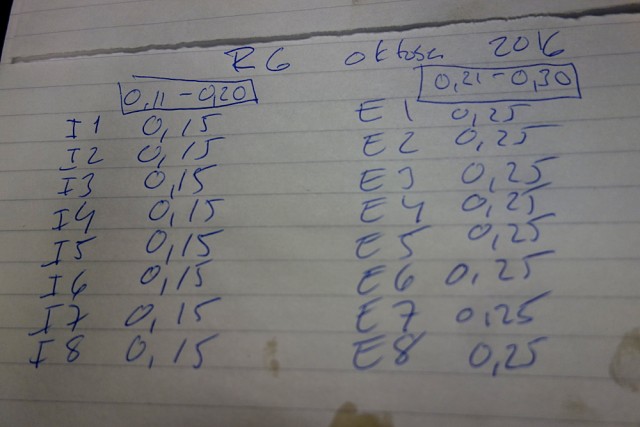 R6 oktober 2016
0,11-0,20 0,21-0,30
I1 0,15 E1 0,25
I2 0,15 E2 0,25
I3 0,15 E3 0,25
I4 0,15 E4 0,25
I5 0,15 E5 0,25
I6 0,15 E6 0,25
I7 0,15 E7 0,25
I8 0,15 E8 0,25